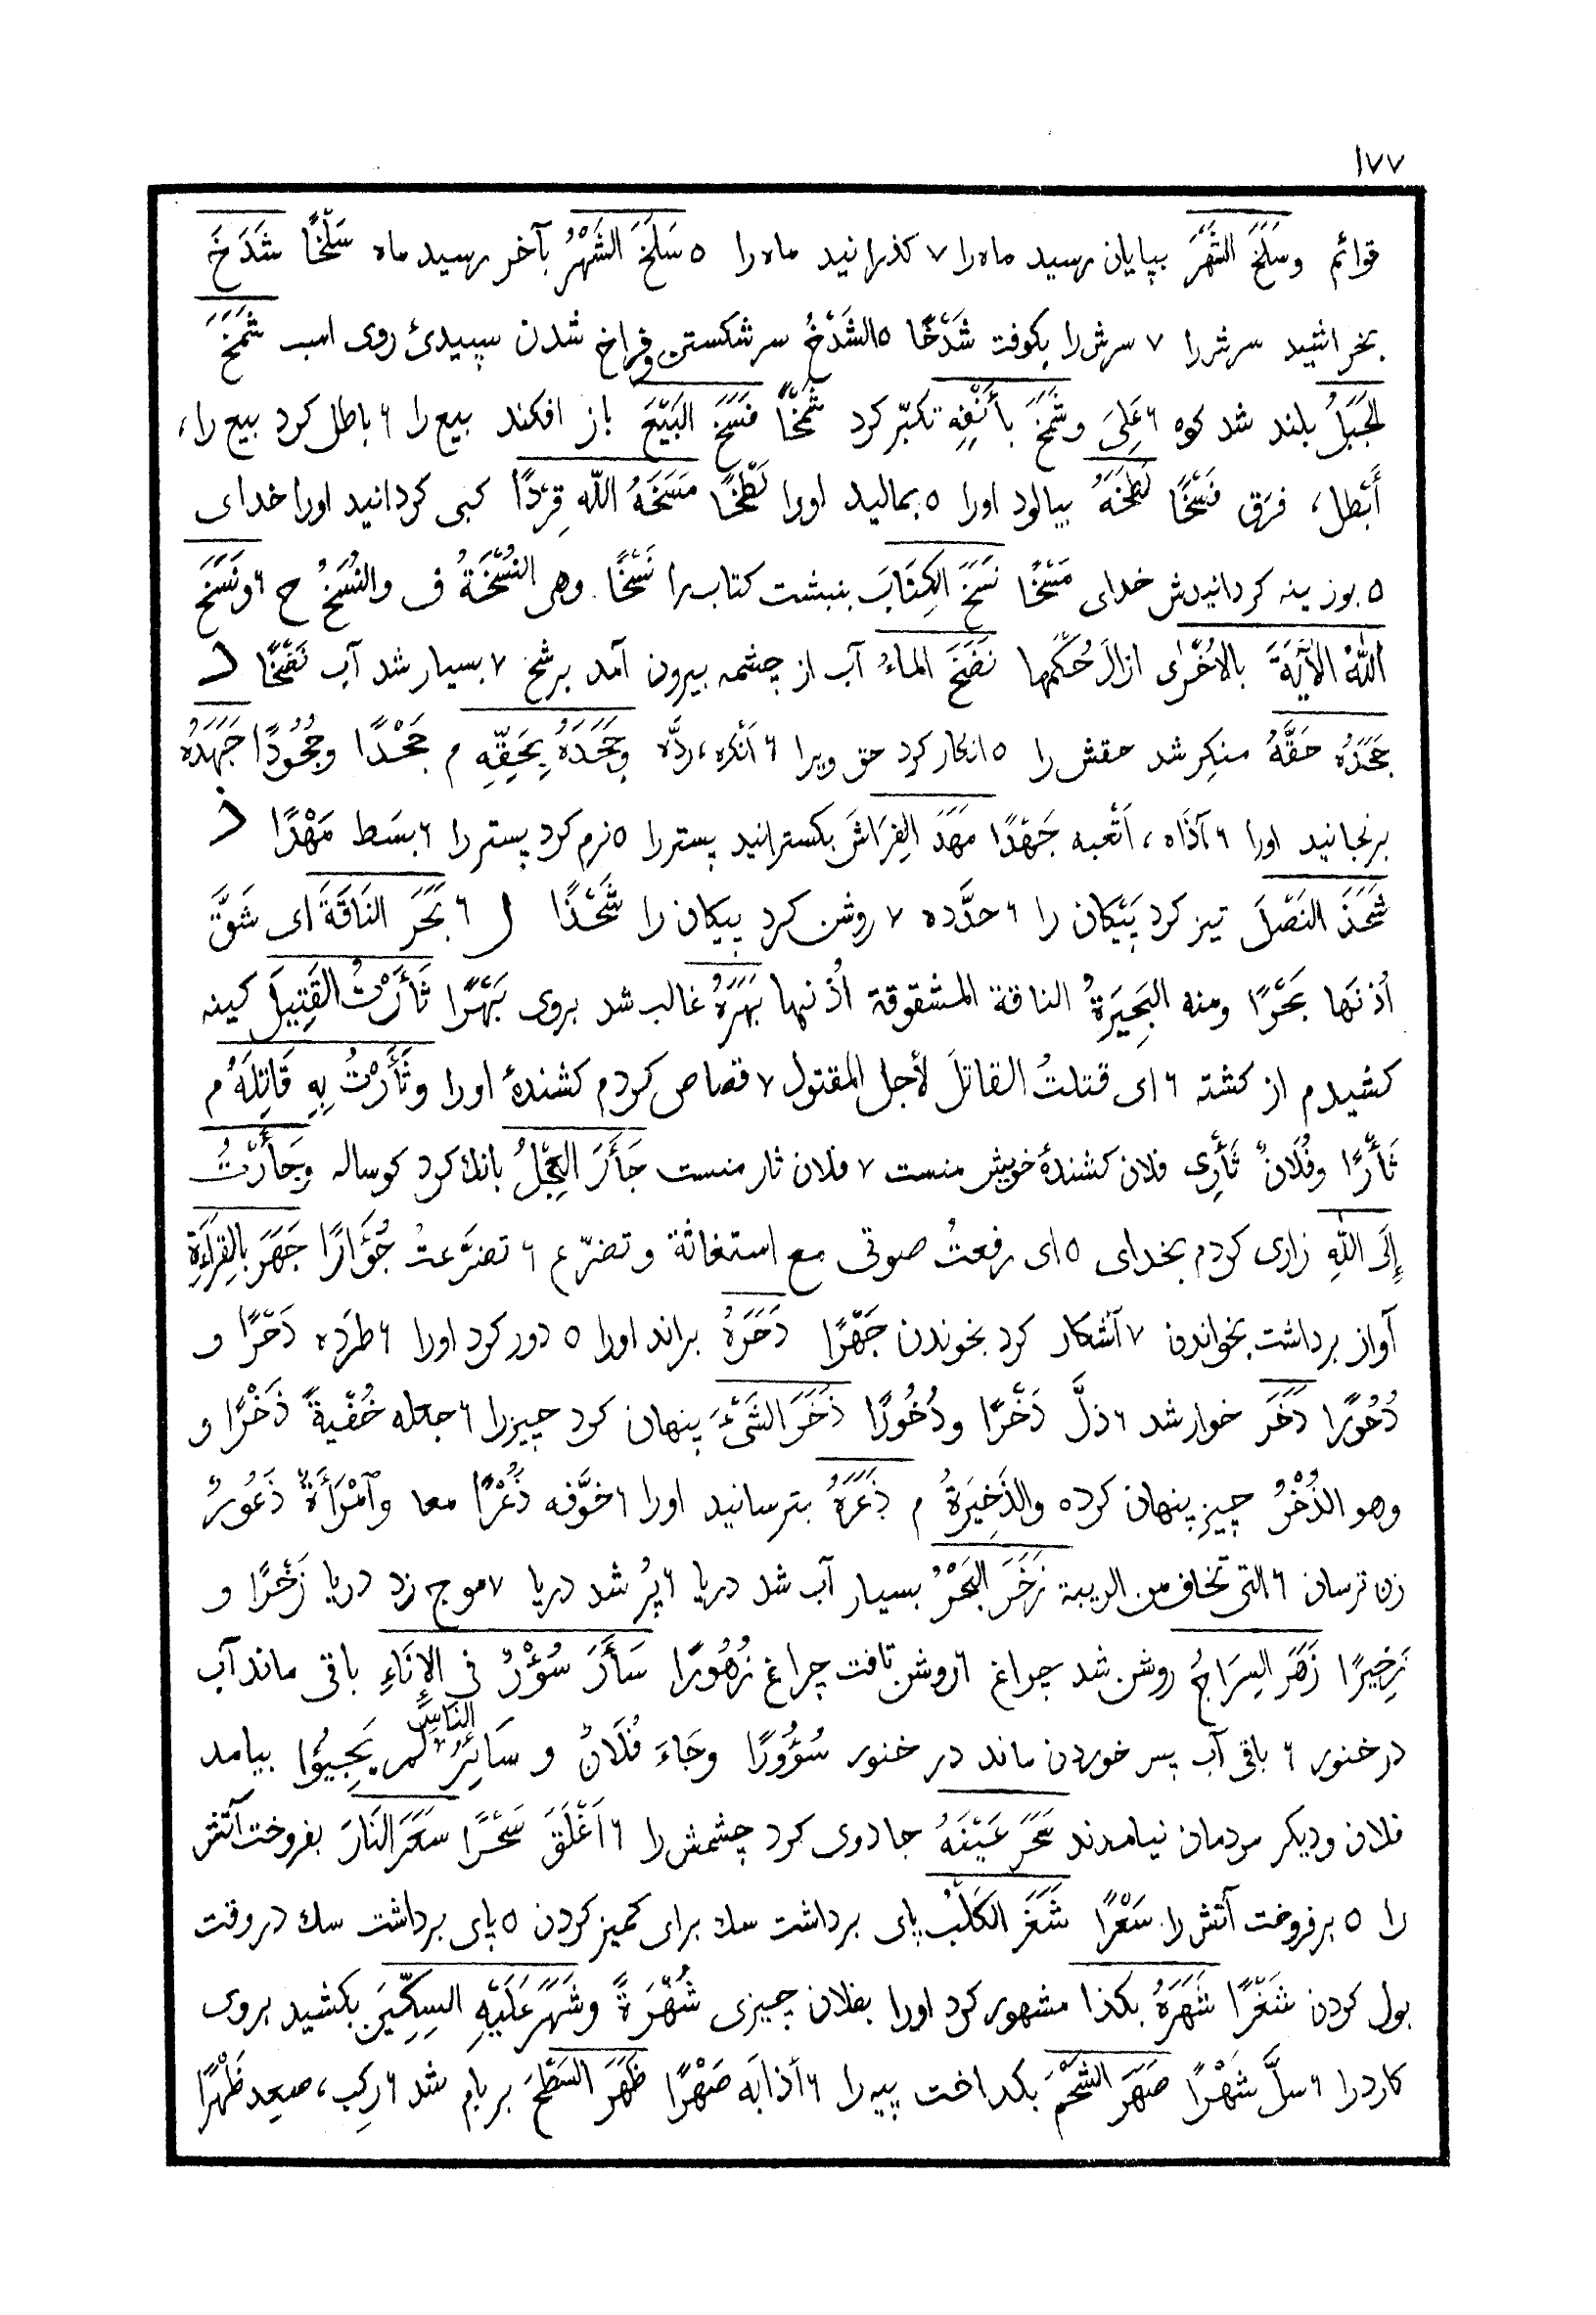 ١٧٧
قوائم وسَلَخَ الشَّهْرَ بپایان رسید ماه را ٧ کذرانید ماه را ٥ سَلَخَ الشَّهْرُ بآخر رسید ماه سَلْخًا شَدَخَ
بخراشید سرش را ٧ سرش را بکوفت شَدْخًا ٥ الشَدْخُ سر شکستن وفراخ شدن سپیدئ روی اسب شَمَخَ
الجَبَلُ بلند شد کوه ٦ عَلِیَ وشَمَخَ بأَنْفِهِ تکبّر کرد شَمْخًا فَسَخَ البَيْعَ باز افکند بیع را ٦ باطل کرد بیع را،
أَبْطل، فرَق فَسْخًا لَطَخَهُ بیالود اورا ٥ بمالید اورا لَطْخًا مَسَخَهُ اللّه قِرْدًا کبی کردانید اورا خدای
٥ بوزینه کردانیدش خدای مَسْخًا نَسَخَ الكِتَابَ بنبشت کتاب را نَسْخًا وهی النُسْخَةُ ف والنُسَخُ ح ٦ ونَسَخَ
اللّهُ الآيَةَ بالاُخْرٰی ازالَ حُكْمها نَضَخَ الماءُ آب از چشمه بیرون آمد برشخ ٧ بسیار شد آب نَضْخًا د
جَحَدَهُ حَقَّهُ منکِر شد حقش را ٥ انکار کرد حق ویرا ٦ اَنْکره، ردَّه وجَحَدَهُ بِحَقِّهِ م جَحْدًا وجُحُودًا جَهَدَهُ
برنجانید اورا ٦ آذَاه، اَتْعبه جَهْدًا مَهَدَ الفِرَاشَ بکسترانید پستر را ٥ نرم کرد پستر را ٦ بسَط مَهْدًا ذ
شَحَذَ النَصْلَ تیز کرد پَیْکان را ٦ حدَّده ٧ روشن کرد پیکان را شَحْذًا ر ٦ بَحَرَ النَاقَةَ ای شَقَّ
اُذنَها بَحْرًا ومنه البَحِيرَةُ الناقة المشقوقة اُذُنها بَهَرَهُ غالب شد بروی بَهْرًا ثَأَرْتُ القَتِيلَ کینه
کشیدم از کشته ٦ ای قتلتُ القاتلَ لأجل المقتول ٧ قصاص کردم کشندهٔ اورا وثَأَرْتُ بِهِ قَاتِلَهُ م
ثَأْرًا وفُلَانٌ ثَأْرِی فلان کشندهٔ خویش منست ٧ فلان ثار منست جَأَرَ العِجْلُ بانك کرد کوساله وجَأَرْتُ
إِلَی اللّهِ زاری کردم بخدای ٥ ای رفعتُ صوتی مع استغاثة وتضرّع ٦ تضرَّعتُ جُؤَارًا جَهَرَ بِالقِرَاءَةِ
آواز برداشت بخواندن ٧ آشکار کرد بخوندن جَهْرًا دَحَرَهُ براند اورا ٥ دور کرد اورا ٦ طرَده دَحْرًا و
دُحُورًا دَخَرَ خوار شد ٦ ذلَّ دَخْرًا ودُخُورًا ذَخَرَ الشَیْءَ پنهان کرد چیز را ٦ جعله خُفْيةً ذَخْرًا و
وهو الذُخْرُ چیز پنهان کرده والذَخِيرَةُ م ذَعَرَهُ بترسانید اورا ٦ خوَّفه ذُعْرًا معا وآمْرَأَةٌ ذَعُورٌ
زن ترسان ٦ التی تخاف من الريبة زَخَرَ البَحْرُ بسیار آب شد دریا ٦ پُر شد دریا ٧ موج زد دریا زَخْرًا و
زَخِيرًا زَهَرَ السِرَاجُ روشن شد چراغ ٦ روشن تافت چراغ زُهُورًا سَأَرَ سُؤْرٌ فی الإِنَاءِ باقی ماند آب
در خنور ٦ باقی آب پس خوردن ماند در خنور سُؤُورًا وجَاءَ فُلَانٌ و سَائِرُ النَاسِ لم يَجِيؤُا بیامد
فلان ودیکر مردمان نیامدند سَحَرَ عَيْنَهُ جادوی کرد چشمش را ٦ اَغْلَقَ سَحْرًا سَعَرَ النَارَ بفروخت آتش
را ٥ برفروخت آتش را سَعْرًا شَغَرَ الكَلْبُ پای برداشت سك برای کمیز کردن ٥ پای برداشت سك در وقت
بول کردن شَغْرًا شَهَرَهُ بکذا مشهور کرد اورا بفلان چیزی شُهْرَةً وشَهَرَ عَلَيْهِ السِكِّينَ بکشید بروی
کارد را ٦ سلَّ شَهْرًا صَهَرَ الشَحْمَ بکداخت پیه را ٦ أذابَه صَهْرًا ظَهَرَ السَطْحَ بر بام شد ٦ رکِب، صعِد ظَهْرًا